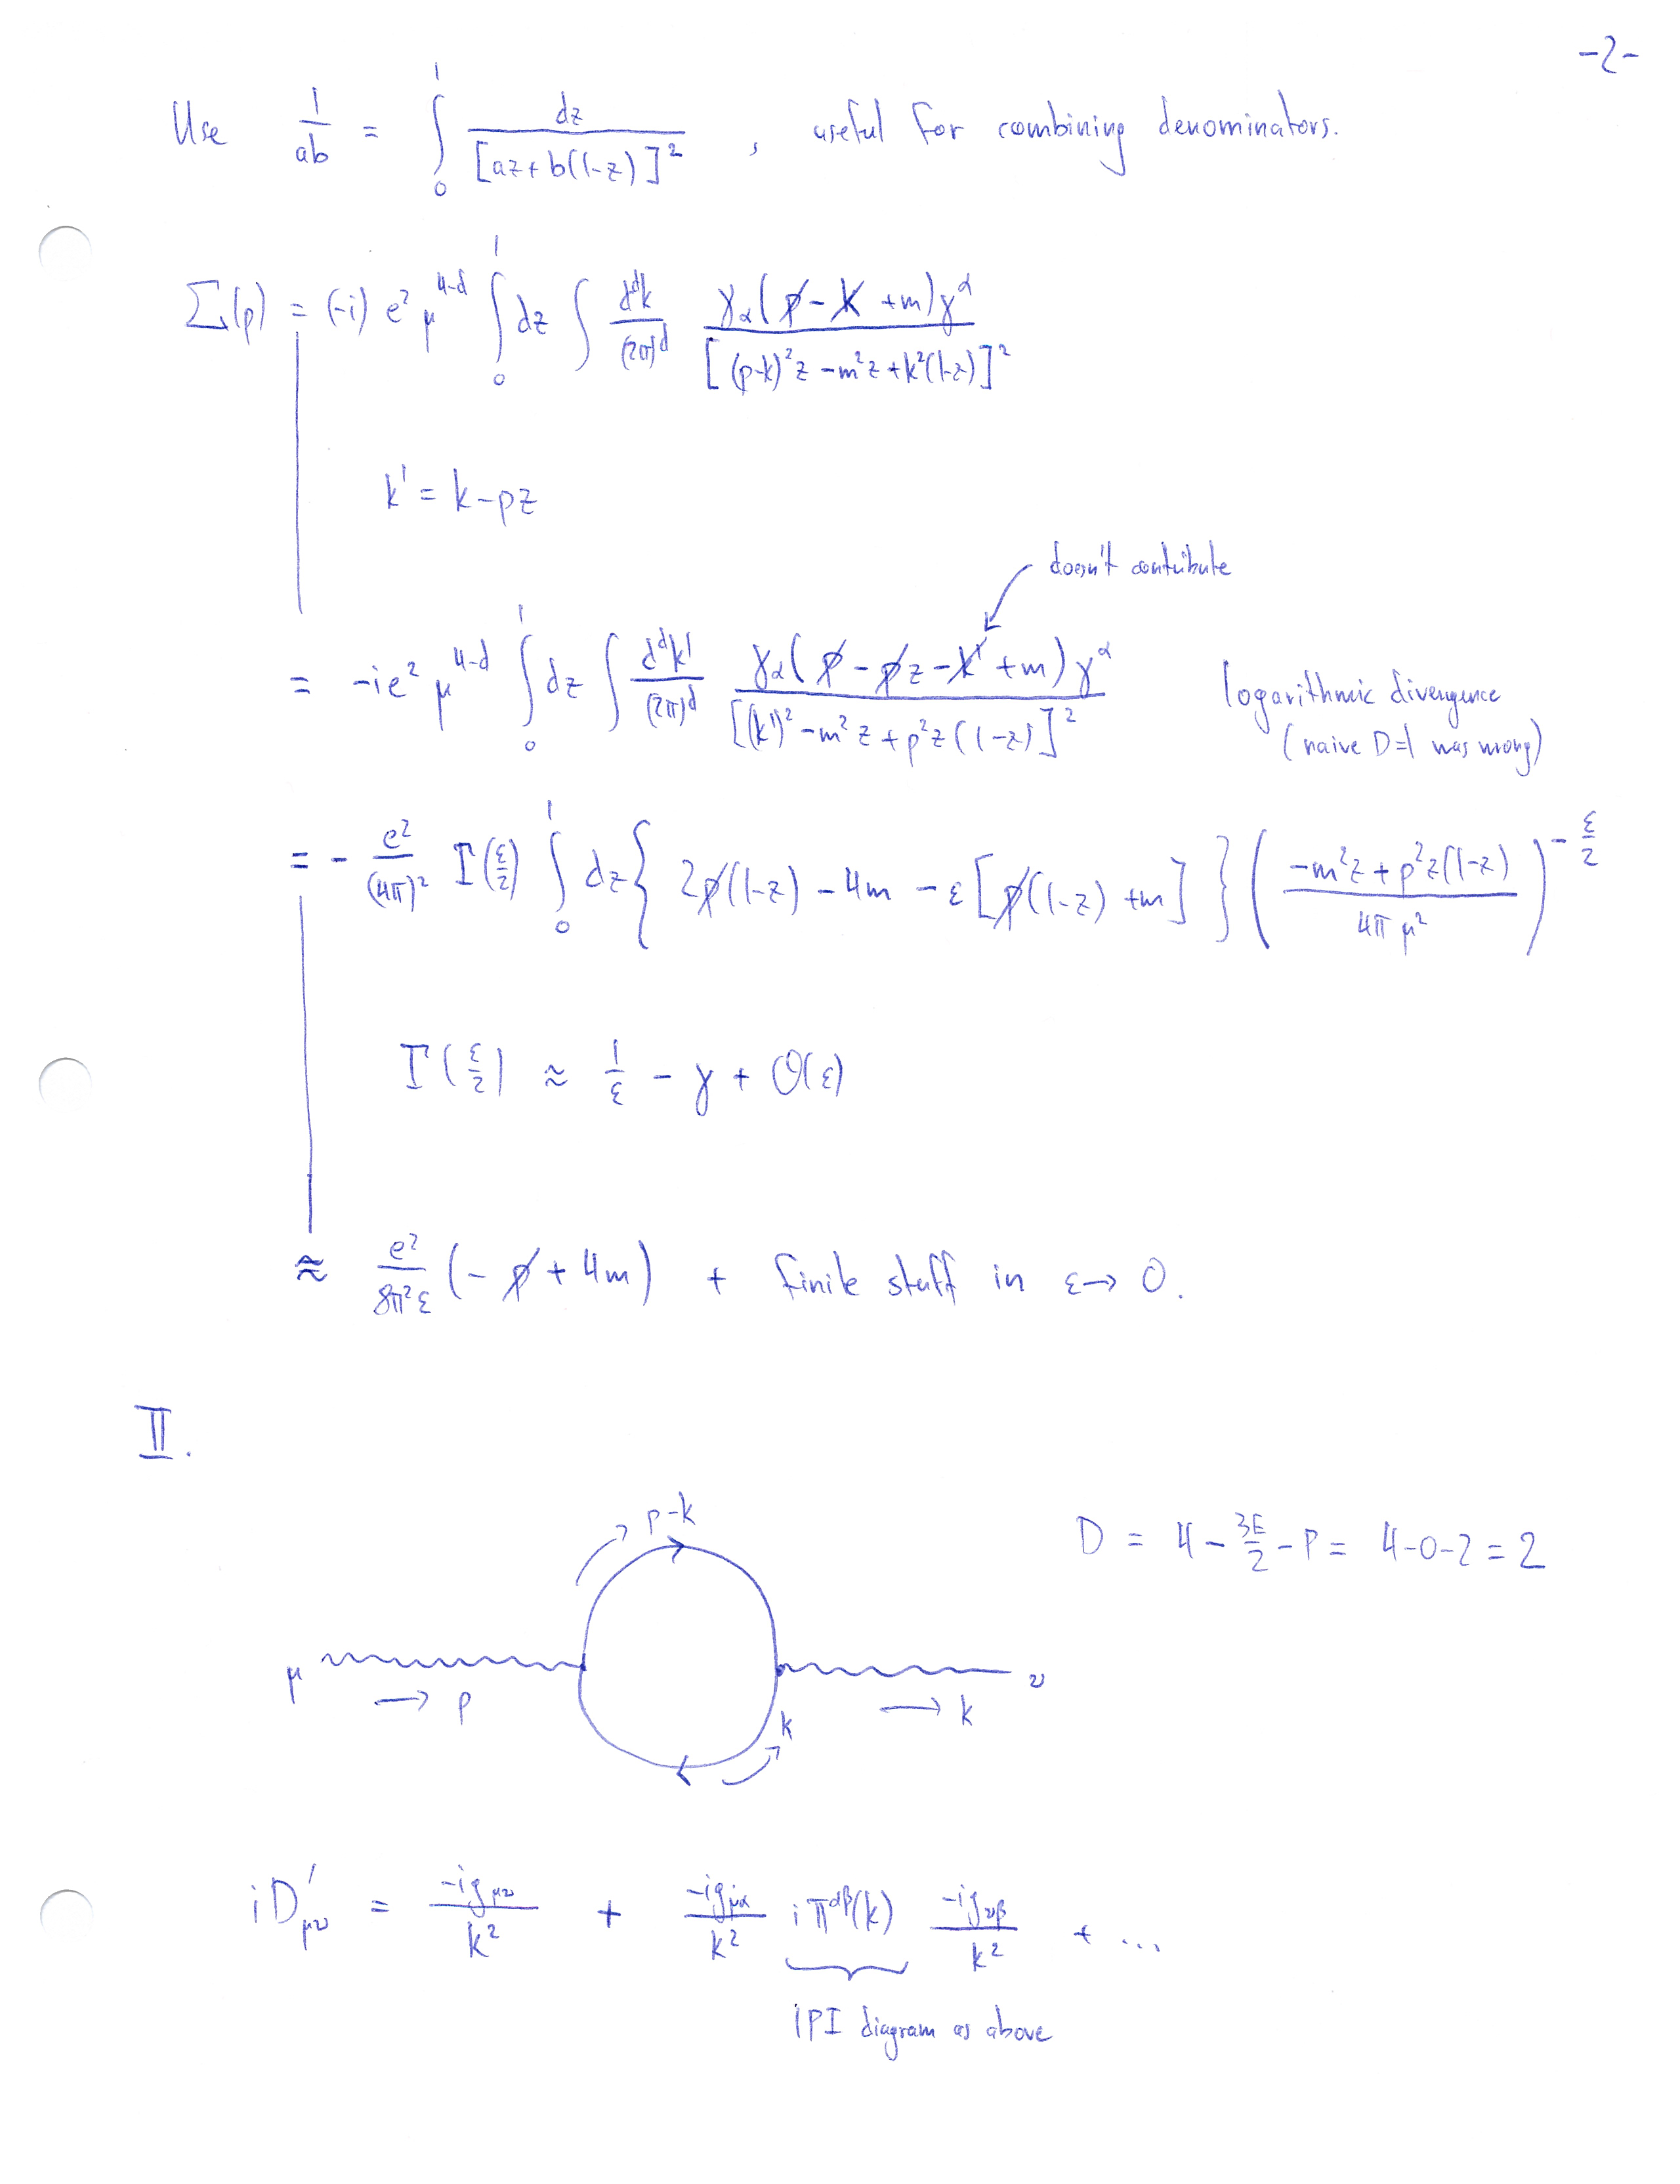 -2-
Use 1/ab = ∫₀¹ dz / [az+b(1-z)]² , useful for combining denominators.
Σ(p) = (-i) e² μ^{4-d} ∫₀¹ dz ∫ d^dk/(2π)^d γ_α(p̸ - k̸ + m)γ^α / [(p-k)²z - m²z + k²(1-z)]²
k' = k-pz
doesn't contribute
= -ie² μ^{4-d} ∫₀¹ dz ∫ d^dk'/(2π)^d γ_α(p̸ - p̸z - k̸' + m)γ^α / [(k')² - m²z + p²z(1-z)]² logarithmic divergence
(naive D=1 was wrong)
= - e²/(4π)² Γ(ε/2) ∫₀¹ dz { 2p̸(1-z) - 4m - ε[p̸(1-z) + m] } ( (-m²z + p²z(1-z)) / 4πμ² )^{-ε/2}
Γ(ε/2) ≈ 1/ε - γ + O(ε)
≈ e²/8π²ε (-p̸ + 4m) + finite stuff in ε→0.
II.
p-k
D = 4 - 3E/2 - P = 4-0-2 = 2
μ ν
→ p → k
k
iD'_{μν} = -ig_{μν}/k² + -ig_{μα}/k² iπ^{αβ}(k) -ig_{νβ}/k² + ...
1PI diagram as above